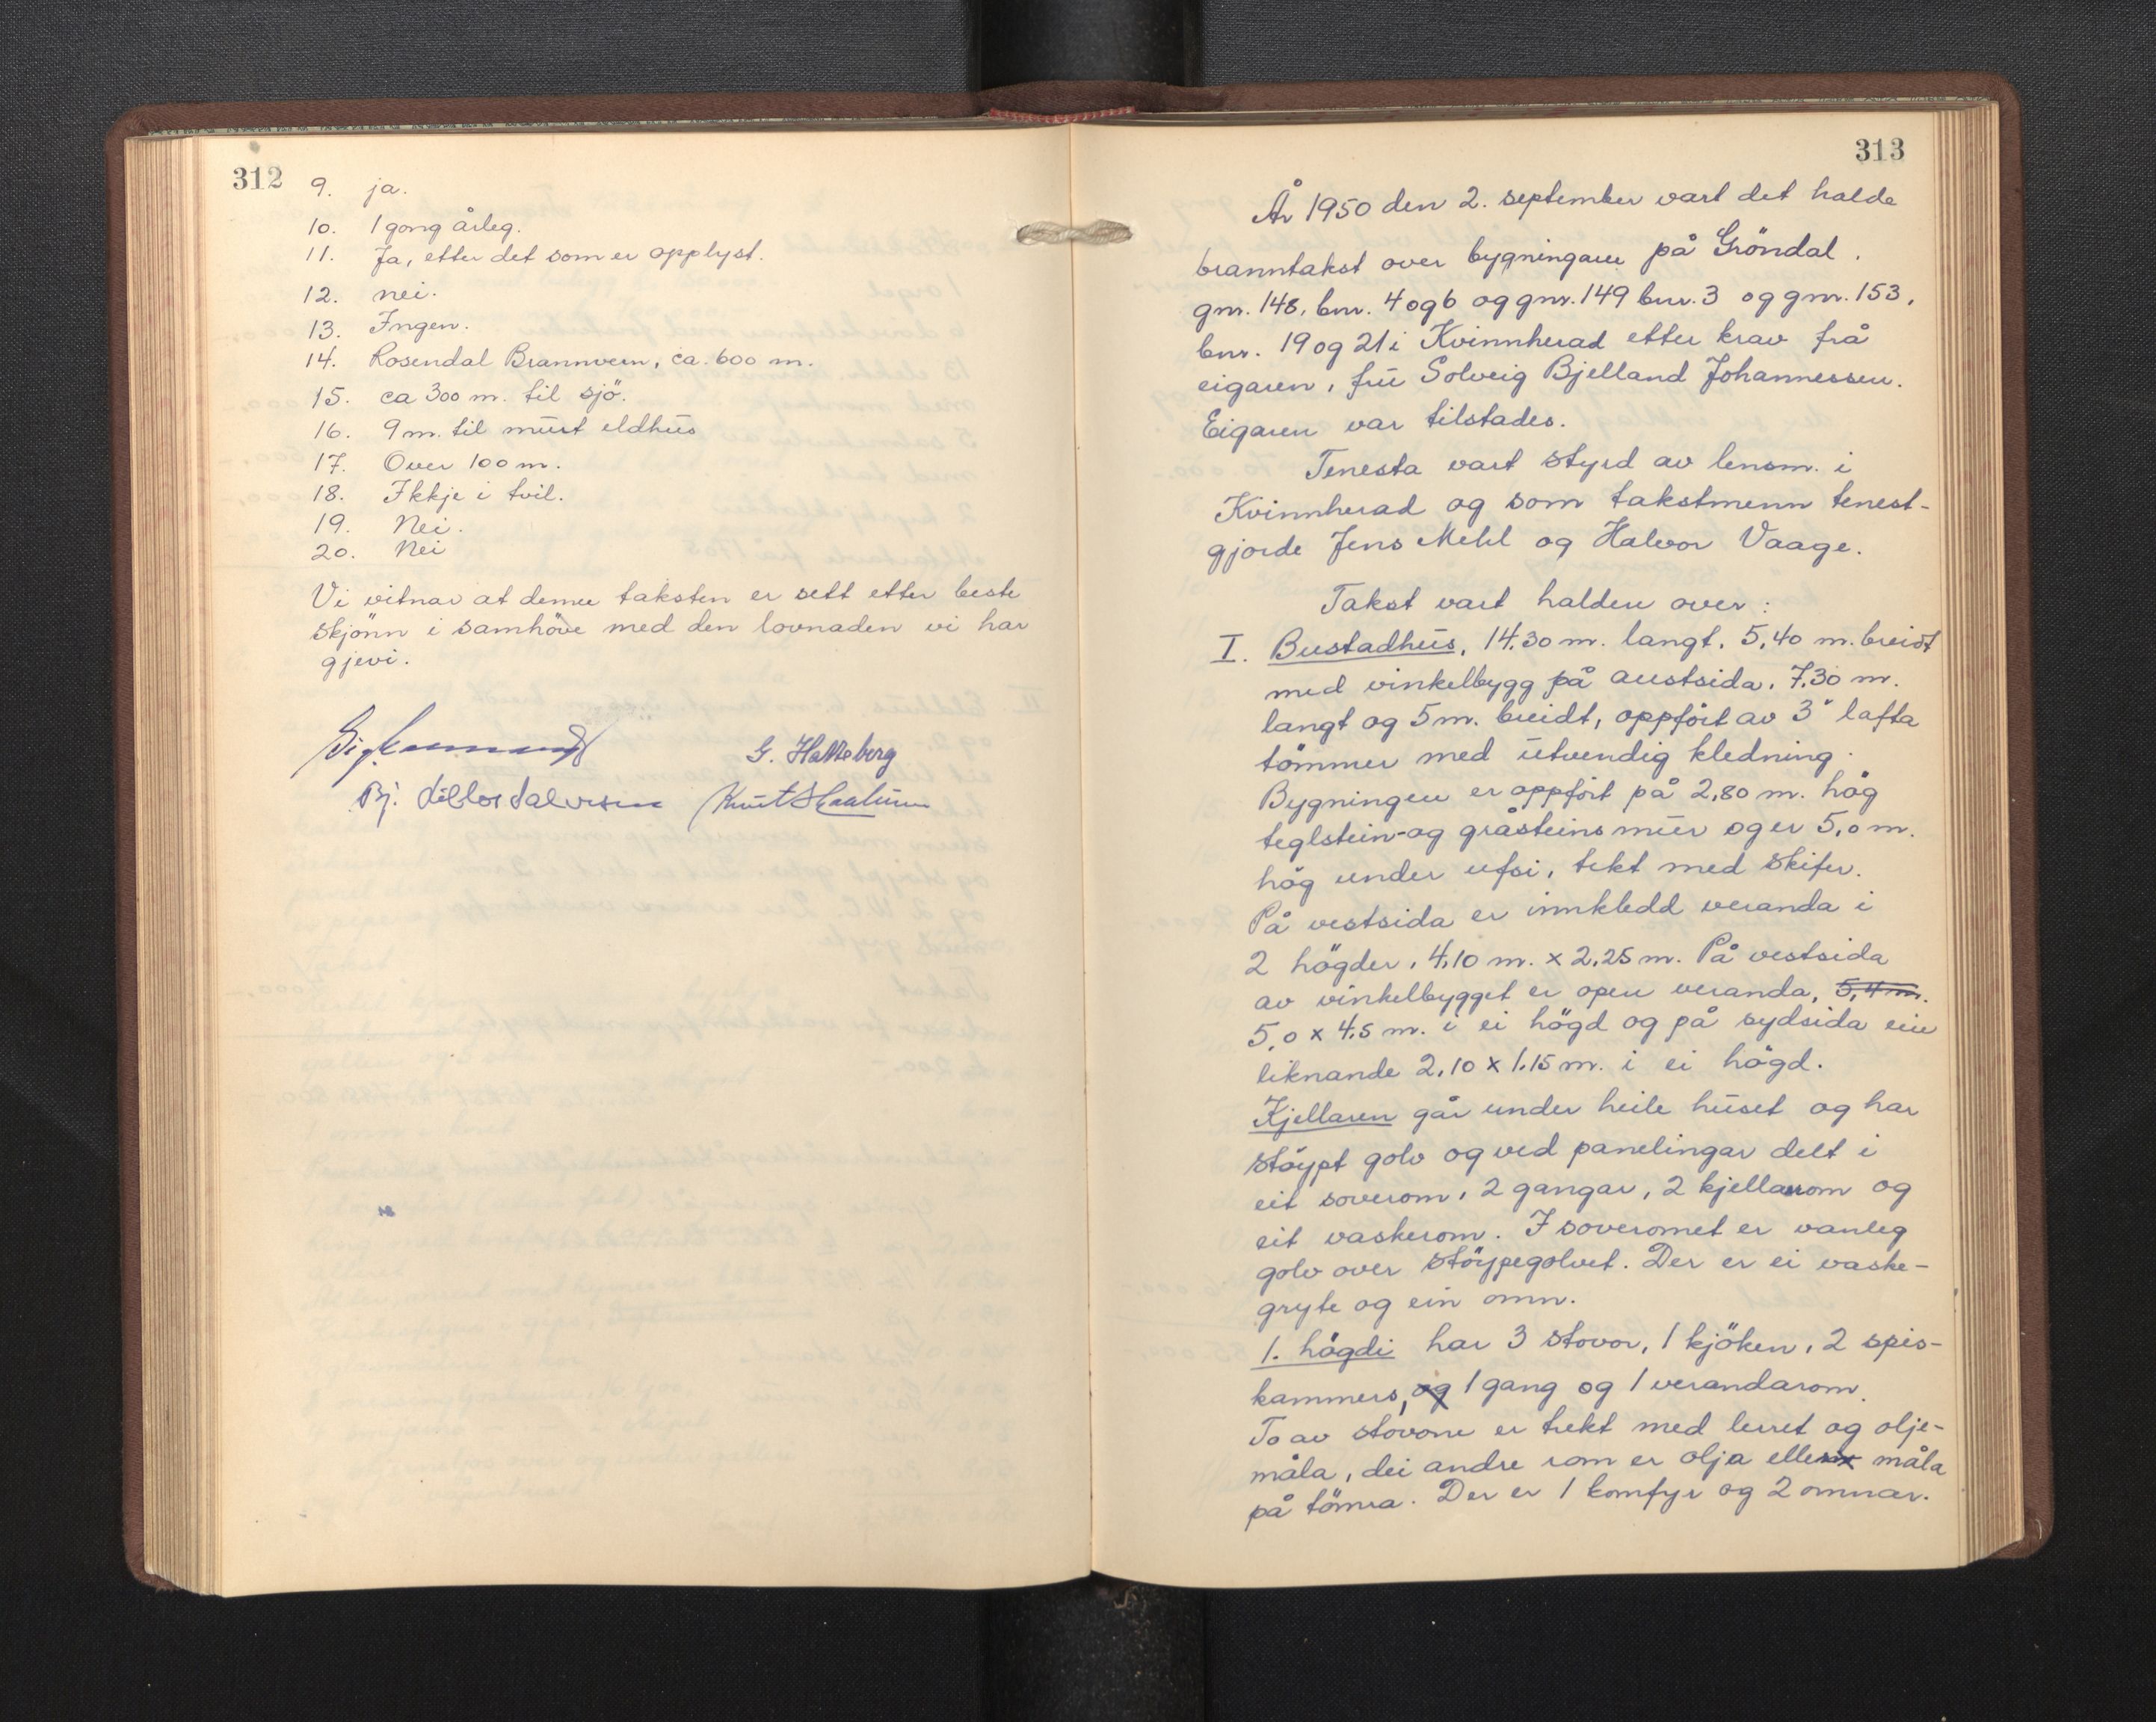 312
9. ja.
10. 1 gong årleg.
11. Ja, etter det som er opplyst.
12. nei.
13. Ingen.
14. Rosendal Brannvern, ca. 600 m.
15. ca 300 m. til sjö.
16. 9 m. til murt eldhus
17. Over 100 m.
18. Ikkje i tvil.
19. Nei.
20. Nei
Vi vitnar at denne taksten er sett etter beste
skjönn i samhöve med den lovnaden vi har
gjevi.
G. Hatteberg
313
År 1950 den 2. september vart det halde
branntakst over bygningane på Gröndal.
gnr. 148, bnr. 4 og 6 og gnr. 149 bnr. 3 og gnr. 153,
bnr. 19 og 21 i Kvinnherad etter krav frå
eigaren, fru Solveig Bjelland Johannessen.
Eigaren var tilstades.
Tenesta vart styrd av lensm. i
Kvinnherad og som takstmenn tenest-
gjorde Jens Mehl og Halvor Vaage.
Takst vart halden over:
I. Bustadhus, 14.30 m. langt, 5,40 m. breidt
med vinkelbygg på austsida, 7.30 m.
langt og 5 m. breidt, oppfört av 3" lafta
tömmer med utvendig kledning.
Bygningen er oppfört på 2,80 m. håg
teglstein-og gråsteinsmur og er 5,0 m.
hög under ufsi, tekt med skifer.
På vestsida er innkledd veranda i
2 högder, 4,10 m. x 2,25 m. På vestsida
av vinkelbygget er open veranda, 5,4 m.
5,0 x 4,5 m. i ei högd og på sydsida ein
liknande 2,10 x 1.15 m. i ei högd.
Kjellaren går under heile huset og har
stöypt golv og ved panelingar delt i
eit soverom, 2 gangar, 2 kjellarrom og
eit vaskerom. I soveromet er vanleg
golv over stöypegolvet. Der er ei vaske-
gryte og ein omn.
1. högdi har 3 stovor, 1 kjöken, 2 spis-
kammers, og 1 gang og 1 verandarom.
To av stovone er trekt med lerret og olje-
måla, dei andre rom er olja eller måla
på tömra. Der er 1 komfyr og 2 omnar.